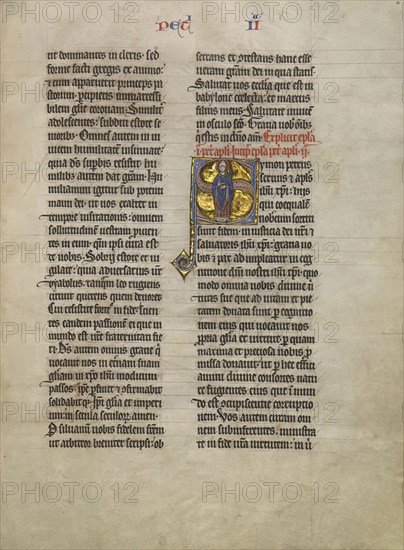 PETRI II
nt dominantes in cleris. sed
forme facti gregis et animo.
et cum apparuerit princeps pa
storum: percipietis inmarcessi
bilem glorie coronam. Similiter
adolescentes: subditi estote se
nioribus. Omnes autem in in
uicem humilitatem insinuate:
quia deus superbis resistit: hu
milibus autem dat gratiam. Hu
miliamini igitur sub potenti
manu dei: ut uos exaltet in
tempore uisitationis: omnem
sollicitudinem uestram proicien
tes in eum: quoniam ipsi cura est
de uobis. Sobrii estote et ui
gilate: quia aduersarius uester
dyabolus. tanquam leo rugiens
circuit querens quem deuoret.
Cui resistite fortes in fide: scien
tes eandem passionem ei que in
mundo est uestre fraternitati fie
ri. Deus autem omnis gratie qui
uocauit nos in eternam suam
gloriam in christo ihesu modicum
passos. ipse perficiet et confirmabit
solidabitque. ipsi gloria et imperi
um in secula seculorum amen.
Per siluanum uobis fidelem fratrem
ut arbitror breuiter scripsi: ob
secrans et contestans hanc esse
ueram gratiam dei in qua statis.
Salutat uos ecclesia que est in
babylone coelecta. et marcus
filius meus. Salutate inuicem
in osculo sancto. Gratia uobis omnibus
qui estis in christo amen. Explicit epistola
i. petri apostoli. Incipit epistola petri apostoli. ii.
Symon petrus
seruus et apostolus
ihesu christi: hiis
qui coequalem
nobiscum sortiti
sunt fidem. in iusticia dei nostri et
saluatoris ihesu christi: gratia uo
bis et pax adimpleatur in cog
nitione domini nostri ihesu christi. quo
modo omnia nobis diuine uir
tutis sue que ad uitam et pie
tatem donata sunt per cognitio
nem eius qui uocauit nos
propria gloria et uirtute. per quam
maxima et preciosa nobis pro
missa donauit: ut per hec effici
amini diuine consortes natu
re fugientes eius que in mun
do est concupiscentie corruptio
nem. Vos autem curam om
nem subinferentes. ministra
te in fide uestra uirtutem: in uir
PHOTO12